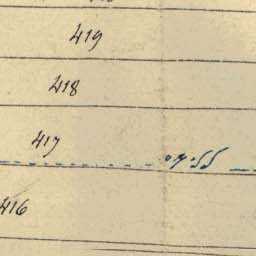 419
418
417
416